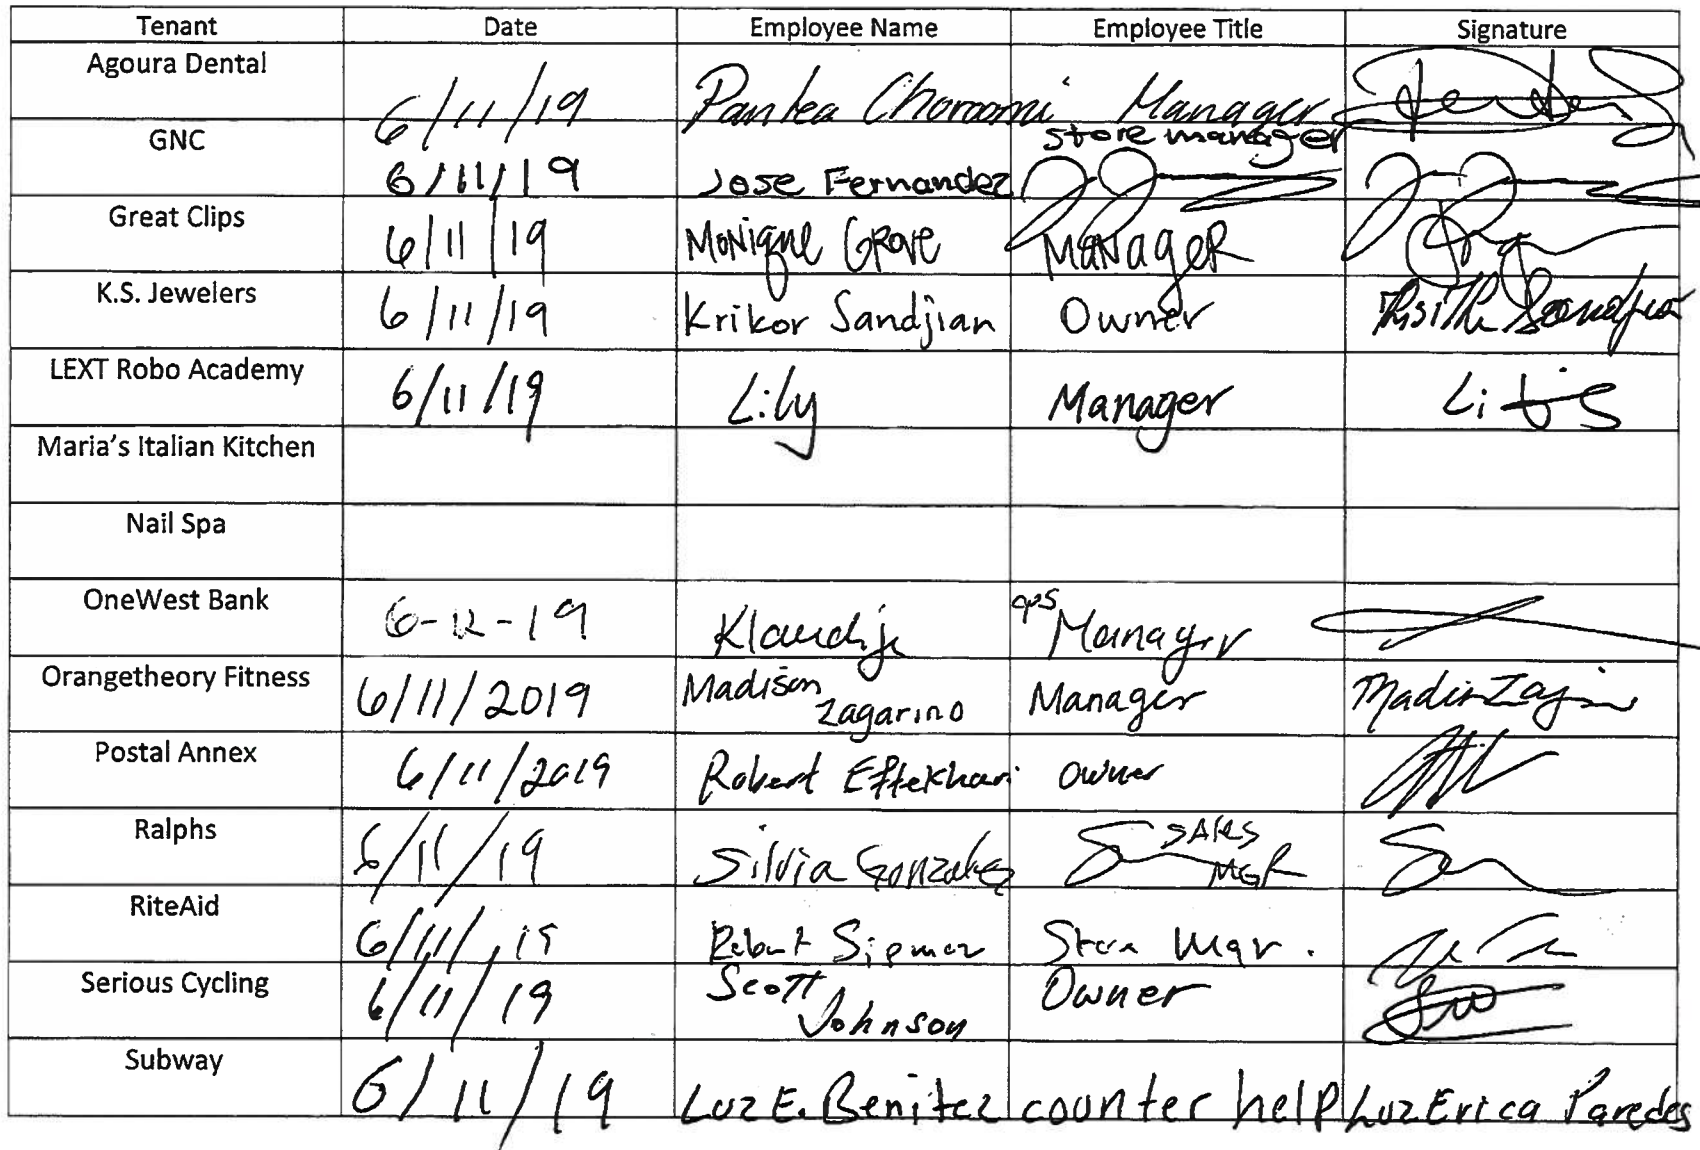 Tenant Date Employee Name Employee Title Signature
Agoura Dental 6/11/19 Pantea Choroomi Manager
GNC 6/11/19 Jose Fernandez store manager
Great Clips 6/11/19 Monique Grove Manager
K.S. Jewelers 6/11/19 Krikor Sandjian Owner
LEXT Robo Academy 6/11/19 Lily Manager
Maria's Italian Kitchen
Nail Spa
OneWest Bank 6-12-19 Klaudija ops Manager
Orangetheory Fitness 6/11/2019 Madison Zagarino Manager
Postal Annex 6/11/2019 Robert Eftekhari Owner
Ralphs 6/11/19 Silvia Gonzalez SALES MGR
RiteAid 6/11/19 Robert Store Mgr.
Serious Cycling 6/11/19 Scott Johnson Owner
Subway 6/11/19 Luz E. Benitez counter help Luz Erica Paredes